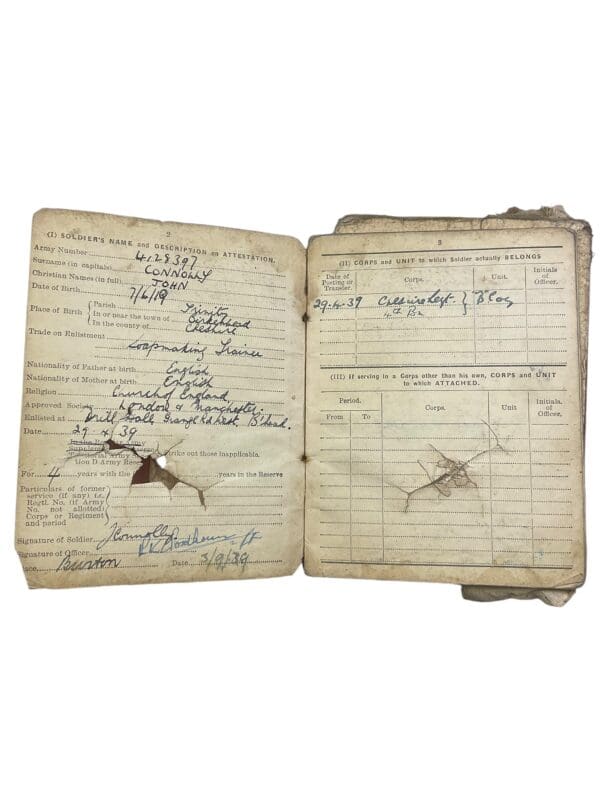 2
(I) SOLDIER'S NAME and DESCRIPTION on ATTESTATION.
Army Number 4128397
Surname (in capitals) CONNOLLY
Christian Names (in full) JOHN
Date of Birth 7/6/19
Place of Birth Parish Trinity
In or near the town of Birkenhead
In the county of Cheshire
Trade on Enlistment
Soapmaking Trainee
Nationality of Father at birth English
Nationality of Mother at birth English
Religion Church of England
Approved Society London & Manchester.
Enlisted at Drill Hall Grange Rd West. B'head.
Date 29.4.39
Territorial Army strike out those inapplicable.
For 4 years with the years in the Reserve
Particulars of former
service (if any) i.e.
Regtl. No. (if Army
No. not allotted)
Corps or Regiment
and period
Signature of Soldier J Connolly.
Signature of Officer
Burton Date 3/9/39
3
(II) CORPS and UNIT to which Soldier actually BELONGS
Date of Posting or Transfer. Corps. Unit. Initials of Officer.
29.4.39 Cheshire Regt. "B" Coy
4th Bn
(III) If serving in a Corps other than his own, CORPS and UNIT
to which ATTACHED.
Period. Corps. Unit Initials of Officer.
From To